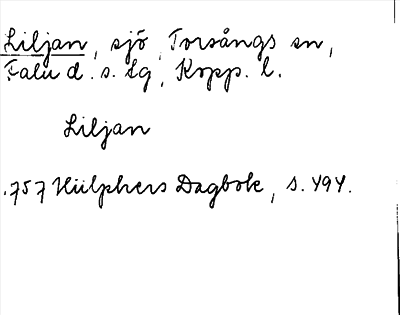 Liljan, sjö, Torsångs sn,
Falu d. s. lg, Kopp. l.
Liljan
.757 Hülphers Dagbok, s. 494.